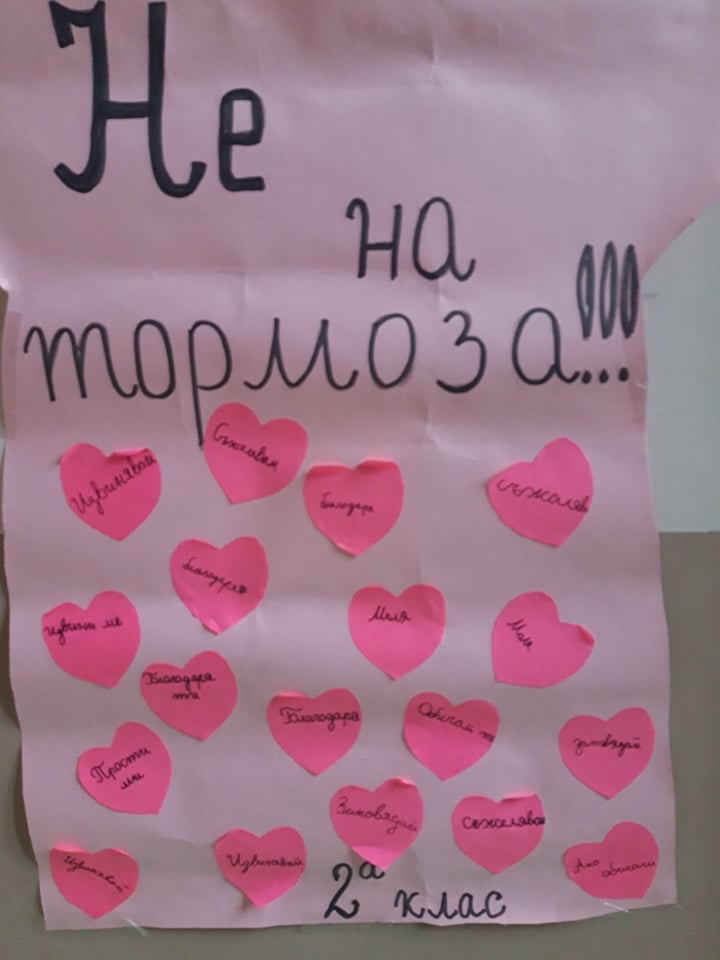 Не
на
тормоза!!!
Съжалявам
Извинявай
благодаря
съжаляв
благодаря
Моля
Извини ме
Благодаря
ти
Благодаря
Обичам те
заповядай
Прости
ми
Заповядай
Съжалявам
Извинявай
Извинявай
2а клас